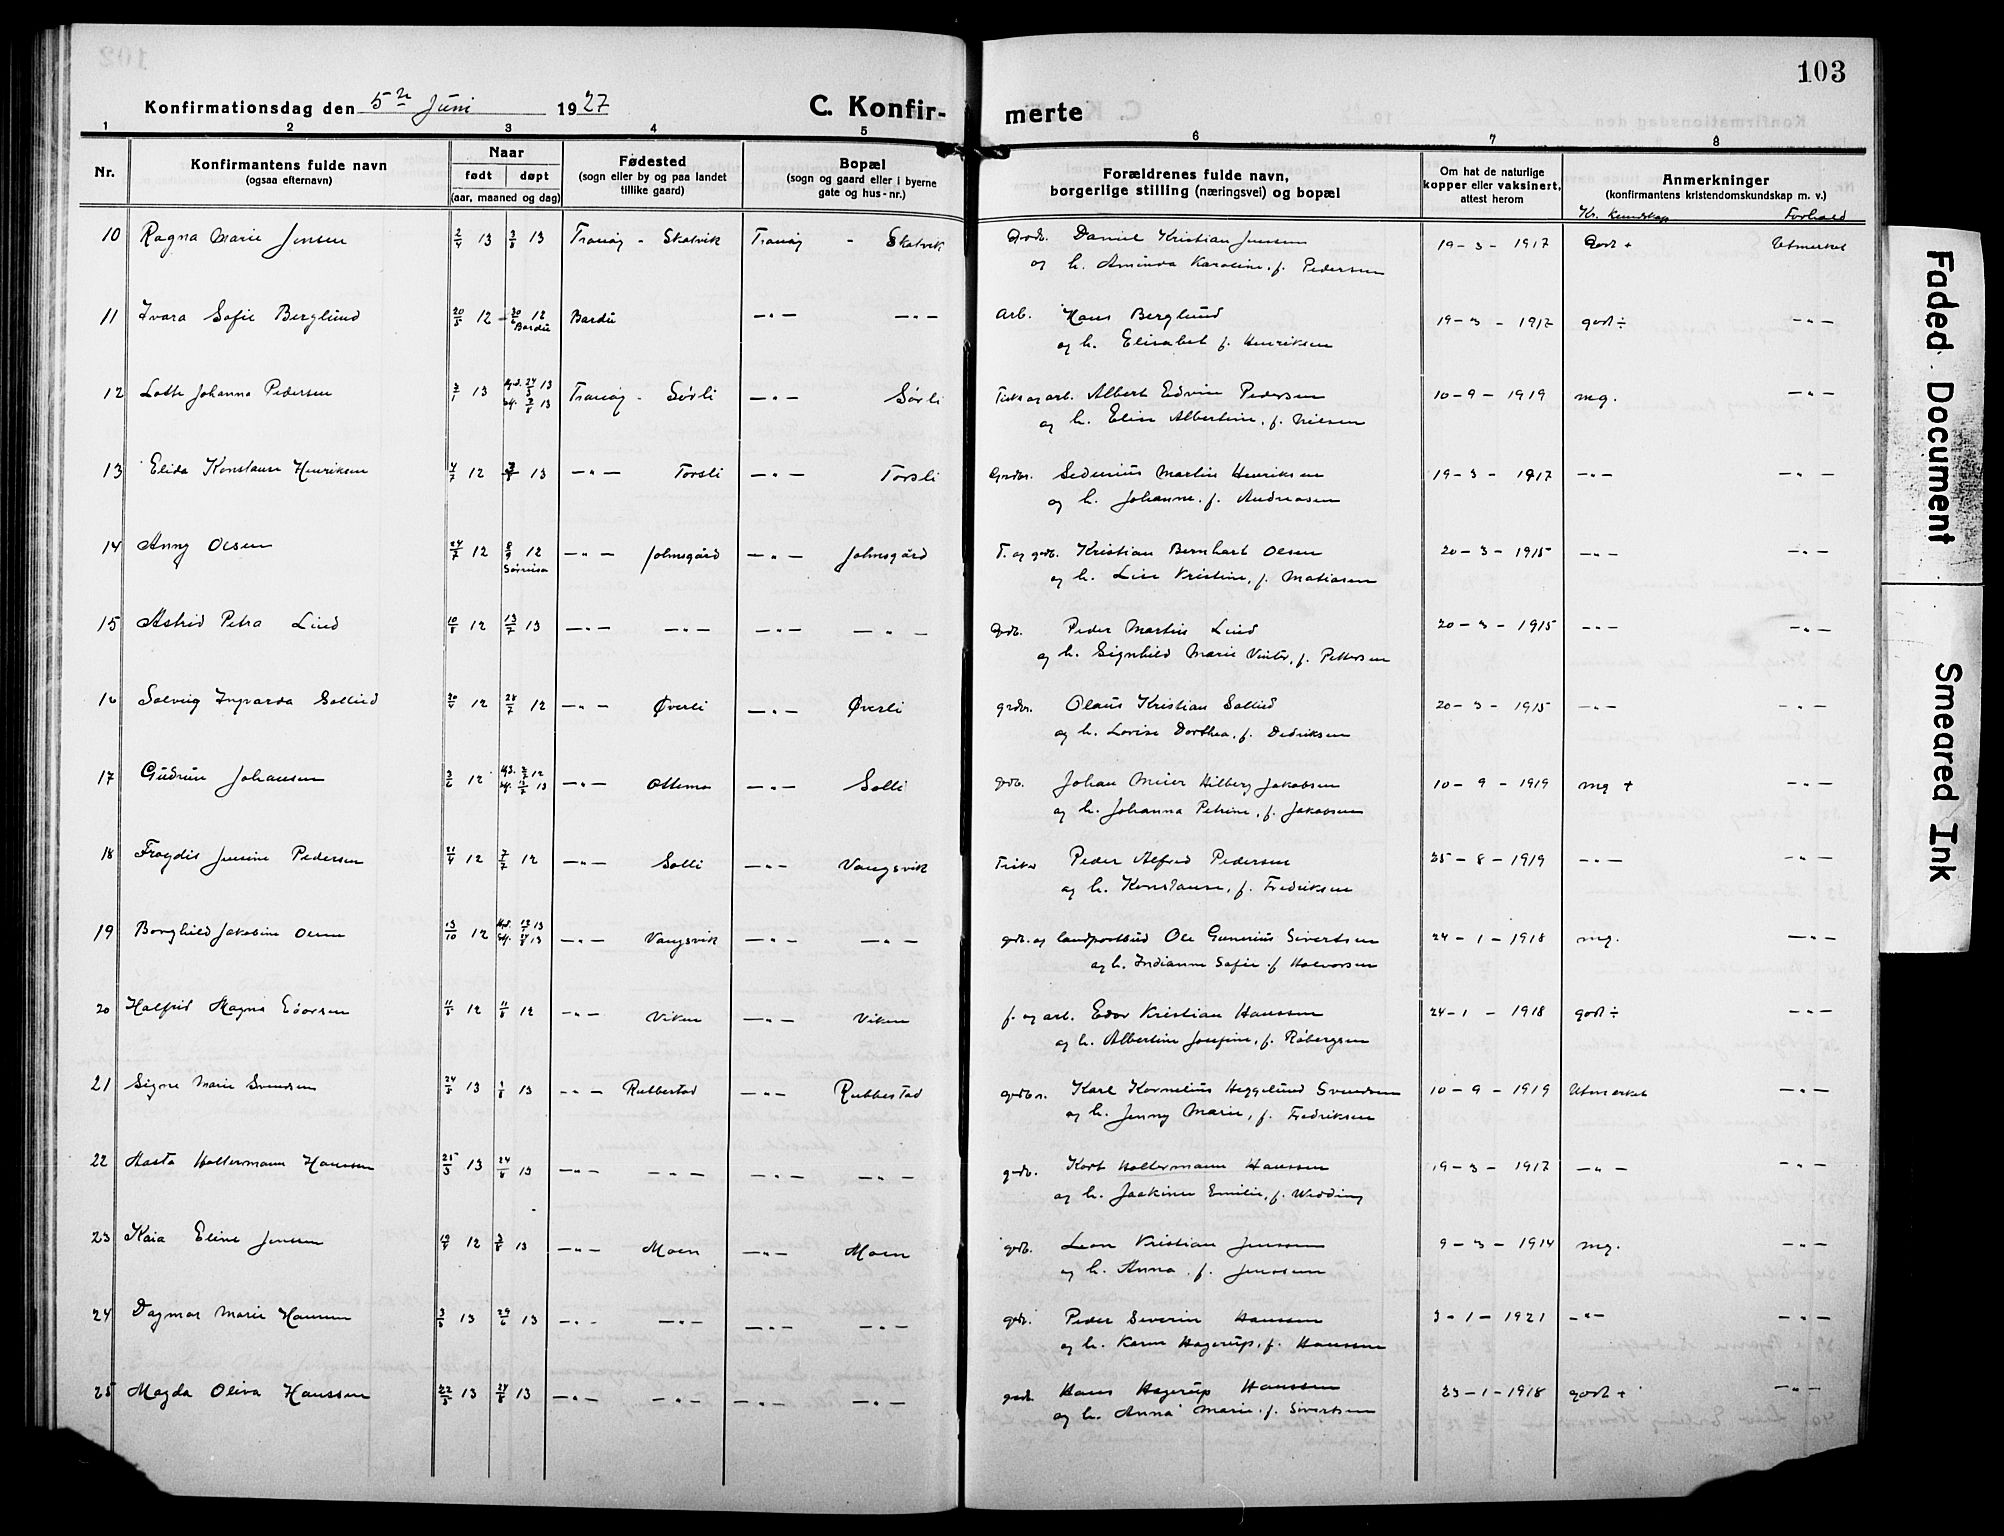 103
Konfirmationsdag den 5te Juni 1927 C. Konfir- merte
1 2 3 4 5 6 7 8
Nr. Konfirmantens fulde navn (ogsaa efternavn)
Naar født døpt (aar, maaned og dag)
Fødested (sogn eller by og paa landet tillike gaard)
Bopæl (sogn og gaard eller i byerne gate og hus-nr.)
Forældrenes fulde navn, borgerlige stilling (næringsvei) og bopæl
Om hat de naturlige kopper eller vaksinert, attest herom
Anmerkninger (konfirmantens kristendomskundskap m. v.)
Kr. kundskap Forhold
10 Ragna Marie Jensen 2/4 13 3/8 13 Tranøy - Skatvik Tranøy - Skatvik Gdb. Daniel Kristian Jenssen 19-3-1917 Godt + Utmerket
og h. Aminda Karoline, f. Pedersen
11 Ivara Sofie Berglund 20/5 12 30/6 12 Bardu Bardu -"- -"- Arb. Hans Berglund 19-3-1917 godt ÷ -"-
og h. Elisabet f. Henriksen
12 Lotte Johanna Pedersen 3/1 13 Hjd. 24/3 13 Tranøy - Sørli -"- Sørli Fisk. og arb. Albert Edvin Pedersen 10-9-1919 mg. -"-
og h. Elise Albertine, f. Nielsen
13 Elida Konstanse Henriksen 4/7 12 3/8 13 -"- Torsli -"- Torsli Grdbr. Sedenius Martin Henriksen 19-3-1917 -"- -"-
og h. Johanne, f. Andreasen
14 Anny Olsen 24/7 12 8/9 12 Sørreisa -"- Johnsgård -"- Johnsgård F. og gdb. Kristian Bernhart Olsen 20-3-1915 -"- -"-
og h. Lise Kristine, f. Matiasen
15 Astrid Petra Lind 10/8 12 13/7 13 -"- -"- -"- -"- Gdb. Peder Martin Lind 20-3-1915 -"- -"-
og h. Signhild Marie Vinter, f. Pettersen
16 Solveig Ingvarda Sollied 20/4 12 28/7 12 -"- Øverli -"- Øverli grdbr. Olaus Kristian Sollied 20-3-1915 -"- -"-
og h. Lovise Dorthea, f. Dedriksen
17 Gudrun Johansen 3/6 12 -"- Ottemo -"- Solli gdb. Johan Meier Hilberg Jakobsen 10-9-1919 mg + -"-
og h. Johanna Petrine, f. Jakobsen
18 Frøydis Jensine Pedersen 21/4 12 7/7 12 -"- Solli -"- Vangsvik Fisker Peder Alfred Pedersen 25-8-1919 -"- -"-
og h. Konstanse, f. Fredriksen
19 Borghild Jakobine Olsen 13/10 12 -"- Vangsvik -"- -"- gdb. og landpostbud Ole Gunerius Sivertsen 24-1-1918 mg. -"-
og h. Indianne Sofie f. Halvorsen
20 Halfrid Magna Edorsen 11/5 12 11/8 12 -"- Viken -"- Viken f. og arb. Edor Kristian Hanssen 24-1-1918 godt ÷ -"-
og h. Albertine Josefine, f. Røbergsen
21 Signe Marie Svendsen 24/5 13 1/8 13 -"- Rubbestad -"- Rubbestad gdbr. Karl Kornelius Heggelund Svendsen 10-9-1919 Utmerket -"-
og h. Jenny Marie, f. Fredriksen
22 Aasta Holtermann Hanssen 25/3 13 24/8 13 -"- -"- -"- -"- gdb. Kort Holtermann Hanssen 19-3-1917 -"- -"-
og h. Joakine Emilie, f. Wedding
23 Kaia Eline Jenssen 19/9 12 3/8 13 -"- Moen -"- Moen gdb. Leon Kristian Jenssen 9-3-1914 mg. -"-
og h. Anna, f. Jenssen
24 Dagmar Marie Hansen 3/3 13 29/6 13 -"- -"- -"- -"- gdb. Peder Severin Hanssen 3-1-1921 -"- -"-
og h. Karen Hagerup, f. Hanssen
25 Magda Oliva Hanssen 22/5 13 24/8 13 -"- -"- -"- -"- gdb. Hans Hagerup Hanssen 23-1-1918 godt + -"-
og h. Anna Marie f. Sivertsen
Faded Document
Smeared Ink